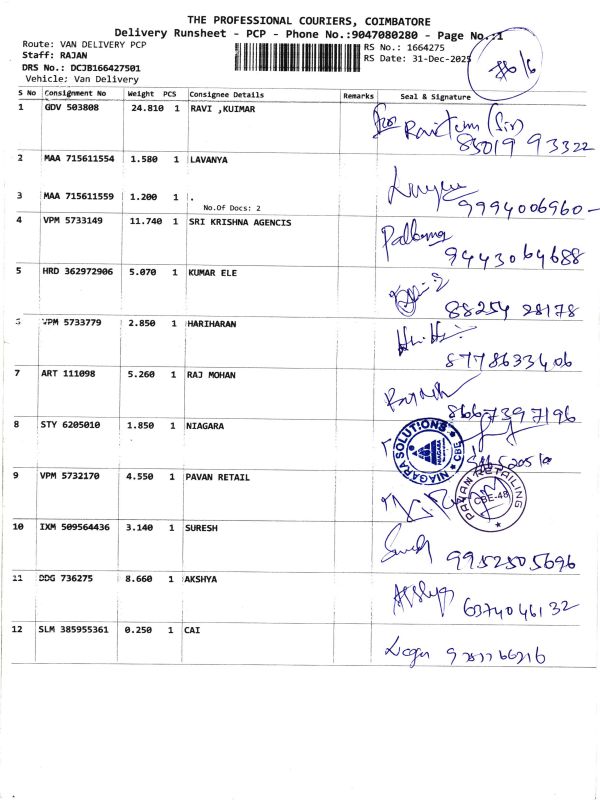 THE PROFESSIONAL COURIERS, COIMBATORE
Delivery Runsheet - PCP - Phone No.:9047080280 - Page No.:1
Route: VAN DELIVERY PCP
Staff: RAJAN
DRS No.: DCJB166427501
Vehicle: Van Delivery
RS No.: 1664275
RS Date: 31-Dec-2025
S No Consignment No Weight PCS Consignee Details Remarks Seal & Signature
1 GDV 503808 24.810 1 RAVI ,KUIMAR
for (Sir)
85019 93322
2 MAA 715611554 1.580 1 LAVANYA
3 MAA 715611559 1.200 1 .
No.Of Docs: 2
9994006960
4 VPM 5733149 11.740 1 SRI KRISHNA AGENCIS
9443064688
5 HRD 362972906 5.070 1 KUMAR ELE
88254 28178
6 VPM 5733779 2.850 1 HARIHARAN
8778633406
7 ART 111098 5.260 1 RAJ MOHAN
8667397196
8 STY 6205010 1.850 1 NIAGARA
NIAGARA SOLUTIONS CBE
NIAGARA
9 VPM 5732170 4.550 1 PAVAN RETAIL
PAVAN RETAILING
CBE-48
10 IXM 509564436 3.140 1 SURESH
9952505696
11 DDG 736275 8.660 1 AKSHYA
6374046132
12 SLM 385955361 0.250 1 CAI